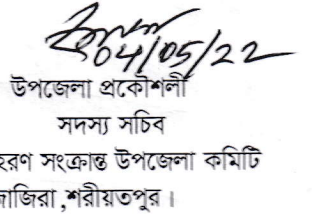 04/05/22
উপজেলা প্রকৌশলী
সদস্য সচিব
সংক্রান্ত উপজেলা কমিটি
জাজিরা,শরীয়তপুর।